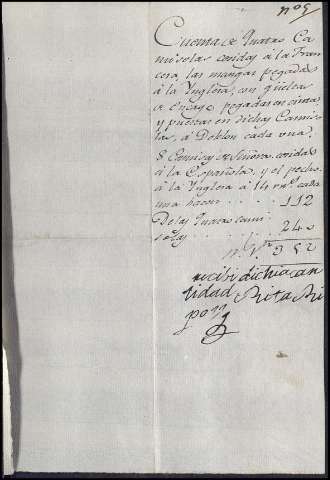 nº 5
Cuenta de Quatro Ca
misolas cosidas â la Fran
cesa, las mangas pegadas
â la Ynglesa, con vueltas
de encage pegadas en cintas
y puestas en dichas Camiso
las, â Doblon cada una.
8 Camisas de Señora cosidas
â la Española, y el pecho
â la Ynglesa â 14 rˢ cada
una hacen . . . . . 112
De las Quatro cami
solas . . . . . . . 240
352
recibi dicha can
tidad Rita Ri
poll